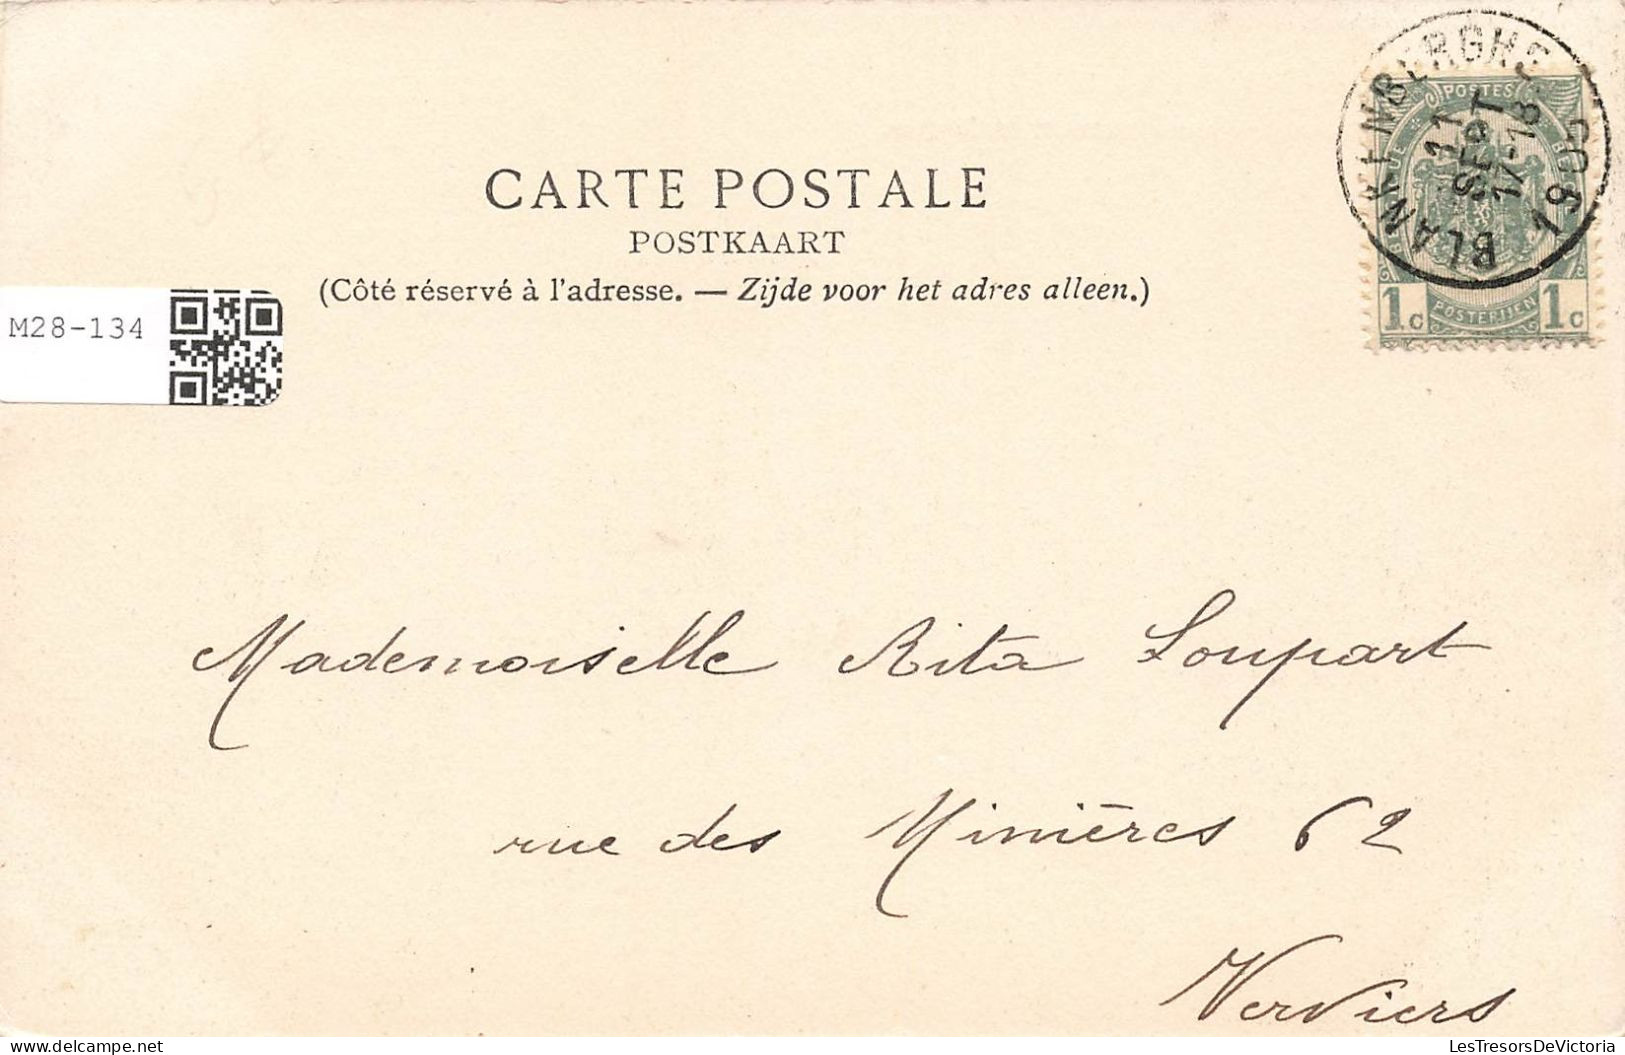 CARTE POSTALE
POSTKAART
(Côté réservé à l'adresse. — Zijde voor het adres alleen.)
M28-134
BLANKENBERGHE
11
SEPT
17-18
1905
POSTES
POSTERIJEN
1c 1c
Mademoiselle Rita Loupart
rue des Minières 62
Verviers
delcampe.net
LesTresorsDeVictoria